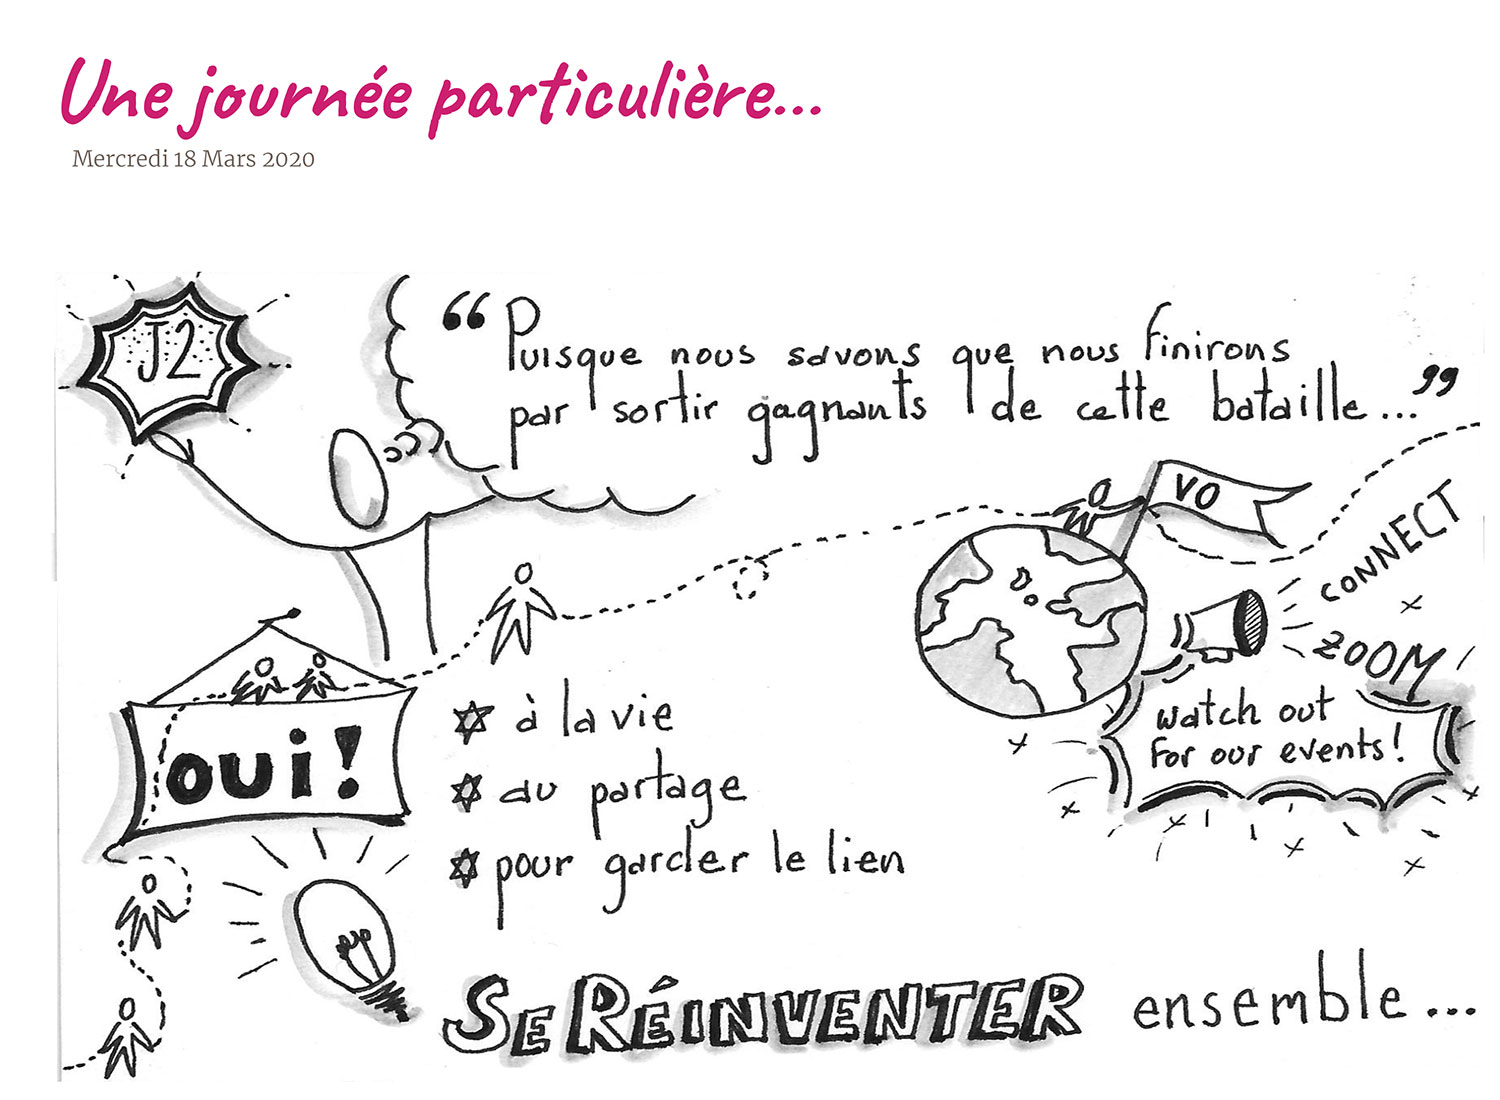 Une journée particulière...
Mercredi 18 Mars 2020
J2
“Puisque nous savons que nous finirons
par sortir gagnants de cette bataille...”
VO
CONNECT
ZOOM
watch out
for our events!
OUI!
à la vie
au partage
pour garder le lien
SE RÉINVENTER ensemble...